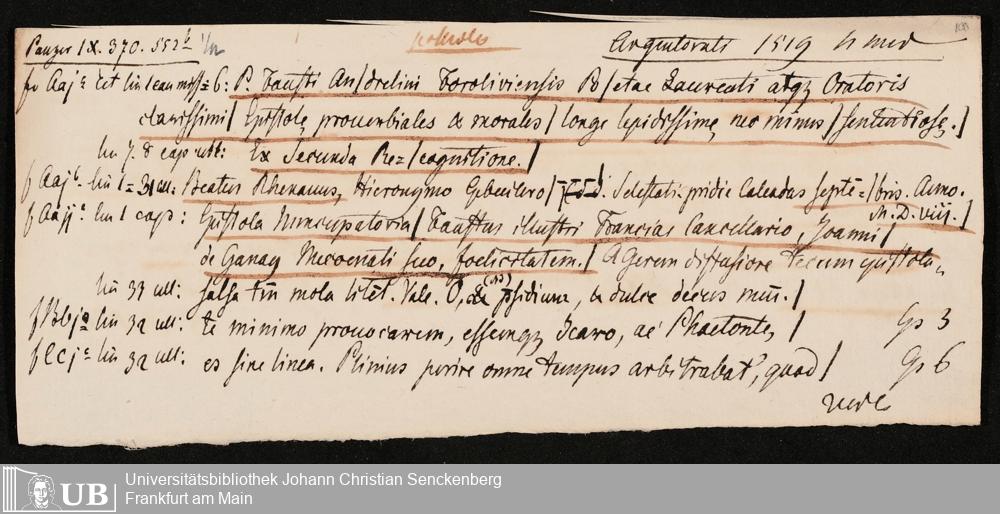 Panzer IX. 370. 552b
Argentorati 1519
P. Fausti An/drelini Foroliviensis Po/etae Laureati atqz Oratoris
clarissimi/ Epistolę prouerbiales & morales/ longe lepidissimę nec minus/ sententiosę./
lin 7. & cap ult: Ex Secunda Rec/cognitione./
Beatus Rhenanus, Hieronymo Gebuilero/ S. D. Selestati pridie Calendas Septē=/bris. Anno.
M. D. viij./
lin 1 cap: Epistola Nuncupatoria/ Faustus illustri Franciae Cancellario, Joanni/
de Ganay Mecoenati suo, foelicitatem./ Agerem diffusiore tecum epistola,
lin 33 ult: salsa tm̄ mola litēt. Vale. O, & pr̄sidium, & dulce decus meū./
lin 32 ult: te minimo prouocarem, essemqz Icaro, ac Phaetonte, / Gs 3
lin 32 ult: es sine linea. Plinius perire omne tempus arbitrabat', quod/ Gs 6
Universitätsbibliothek Johann Christian Senckenberg
Frankfurt am Main
UB